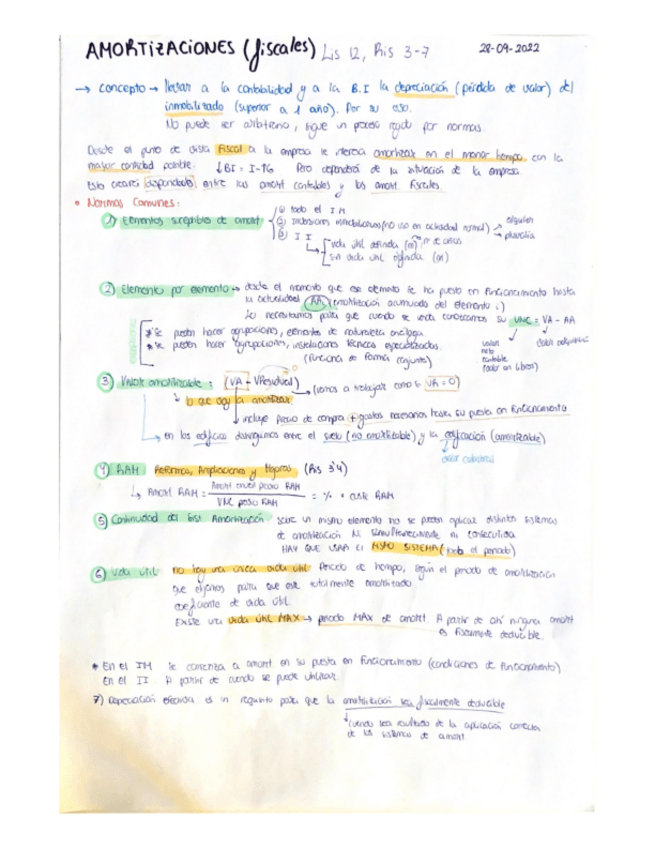 AMORTIZACIONES (fiscales) Lis 12, Ris 3-7 28-09-2022
→ concepto → llevar a la contabilidad y a la B.I la depreciación (pérdida de valor) del
inmovilizado (superior a 1 año). Por su uso.
No puede ser arbitrario, sigue un proceso regido por normas.
Desde el punto de vista Fiscal a la empresa le interesa amortizar en el menor tiempo, con la
mayor cantidad posible. ↓BI = I-↑G. Pero dependerá de la situación de la empresa.
Esto creará disparidades entre las amort contables y las amort. fiscales.
• Normas Comunes:
1) Elementos susceptibles de amort
① todo el IM
② inversiones inmobiliarias (no uso en actividad normal) → alquiler
→ plusvalía
③ I I
→ vida útil definida (m) nº de años
sin vida útil definida (m)
② Elemento por elemento → desde el momento que ese elemento se ha puesto en funcionamiento hasta
la actualidad AA (amortización acumulada del elemento i)
lo necesitamos para que cuando se venda conozcamos su VNC = VA - AA
excepciones
* se pueden hacer agrupaciones, elementos de naturaleza análoga.
* se pueden hacer agrupaciones, instalaciones técnicas especializadas.
(funciona de forma conjunta)
valor neto contable (valor en libros)
valor adquisición
③ Valor amortizable: (VA - VResidual) → (vamos a trabajar como si VR = 0)
↳ lo que voy a amortizar
↓ incluye precio de compra + gastos necesarios hasta su puesta en funcionamiento
→ en los edificios distinguimos entre el suelo (no amortizable) y la edificación (amortizable)
↓ valor catastral
4) RAM: Reformas, Ampliaciones y Mejoras (Ris 3'4)
↳ Amort RAM = Amort anual previo RAM / VNC previo RAM = % • coste RAM
⑤ Continuidad del sist. Amortización: sobre un mismo elemento no se pueden aplicar distintos sistemas
de amortización ni simultáneamente ni consecutiva
HAY QUE USAR EL MISMO SISTEMA (todo el periodo)
⑥ Vida útil: no hay una única vida útil. Periodo de tiempo, según el periodo de amortización
que elijamos para que esté totalmente amortizado
coeficiente de vida útil.
Existe una vida útil MAX → periodo MAX de amort. A partir de ahí ninguna amort
es fiscalmente deducible.
* En el IM se comienza a amort en su puesta en funcionamiento (condiciones de funcionamiento)
En el II A partir de cuando se puede utilizar.
7) Depreciación efectiva es un requisito para que la amortización sea fiscalmente deducible
↓ cuando sea resultado de la aplicación correcta
de los sistemas de amort.